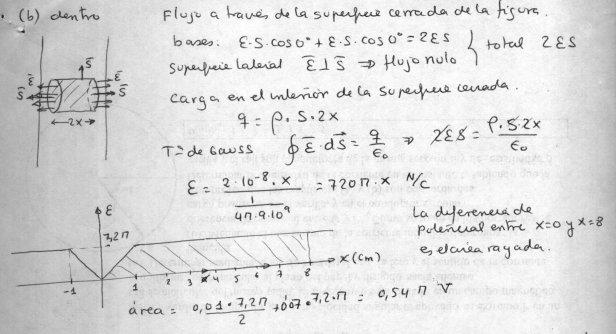 (b) dentro
Flujo a través de la superficie cerrada de la figura.
bases: E.S.cos0º + E.S.cos0º = 2ES } total 2ES
Superficie lateral E⊥S ⇒ flujo nulo
Carga en el interior de la superficie cerrada.
q = ρ.S.2x
Tª de Gauss ∮E.dS = q/ε₀ ⇒ 2ES = ρ.S.2x/ε₀
E = 2·10⁻⁸.x / (1/(4π.9.10⁹)) = 720π.x N/C
S
E E
S S
2x
E
7,2π
-1 1 2 3 4 5 6 7 8 x(cm)
La diferencia de
potencial entre x=0 y x=8
es el área rayada.
área = 0,01.7,2π/2 + 0,07.7,2.π = 0,54π V